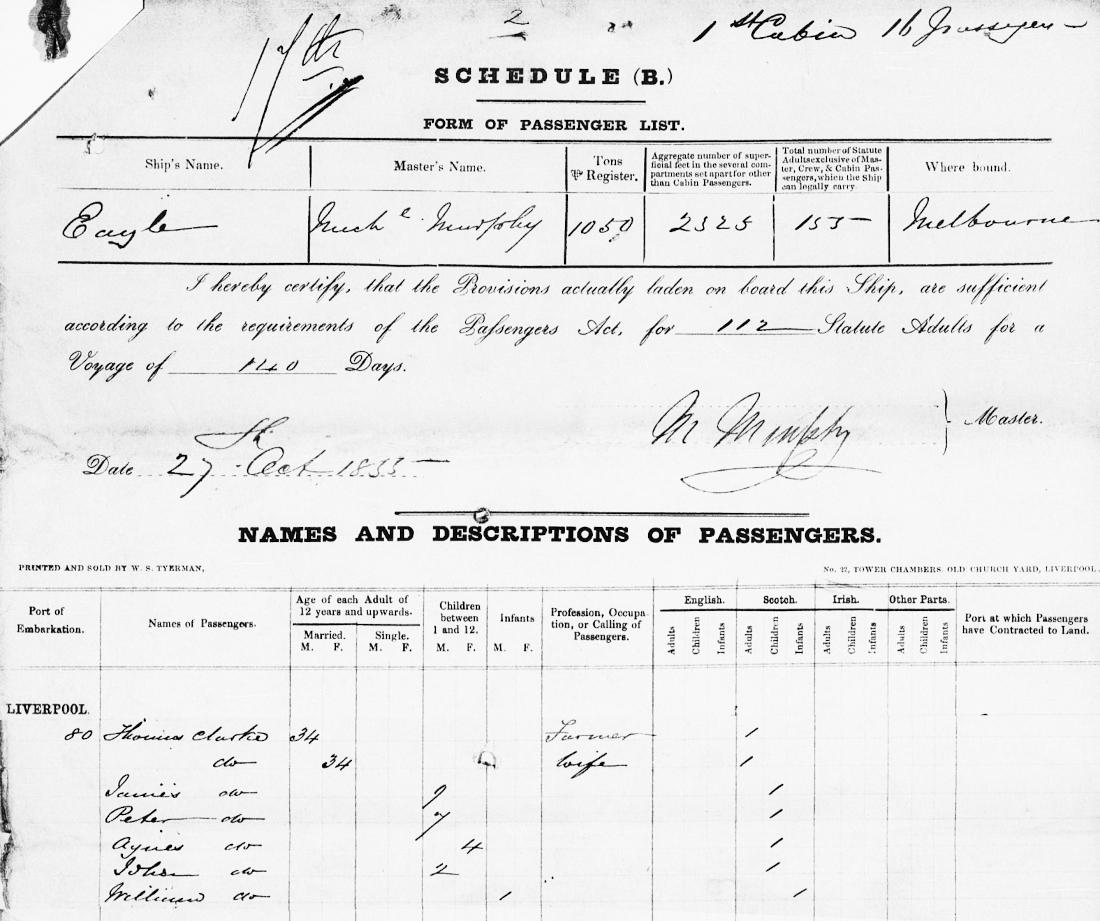 2
1st Cabin 16 Passengers
17th
SCHEDULE (B.)
FORM OF PASSENGER LIST.
Ship's Name. Master's Name. Tons Per Register. Aggregate number of superficial feet in the several compartments set apart for other than Cabin Passengers. Total number of Statute Adults exclusive of Master, Crew, & Cabin Passengers, which the Ship can legally carry. Where bound.
Eagle Michl Murphy 1050 2325 155 Melbourne
I hereby certify, that the Provisions actually laden on board this Ship, are sufficient
according to the requirements of the Passengers Act, for 112 Statute Adults for a
Voyage of 140 Days.
M Murphy Master.
Date 27th Oct 1855
NAMES AND DESCRIPTIONS OF PASSENGERS.
PRINTED AND SOLD BY W. S. TYERMAN, No. 27, TOWER CHAMBERS, OLD CHURCH YARD, LIVERPOOL.
Port of Embarkation. Names of Passengers. Age of each Adult of 12 years and upwards. Married. M. F. Single. M. F. Children between 1 and 12. M. F. Infants M. F. Profession, Occupation, or Calling of Passengers. English. Adults Children Infants Scotch. Adults Children Infants Irish. Adults Children Infants Other Parts. Adults Children Infants Port at which Passengers have Contracted to Land.
LIVERPOOL.
80 Thomas Clarke 34 Farmer 1
do 34 Wife 1
James do 9 1
Peter do 7 1
Agnes do 4 1
John do 2 1
William do 1 1